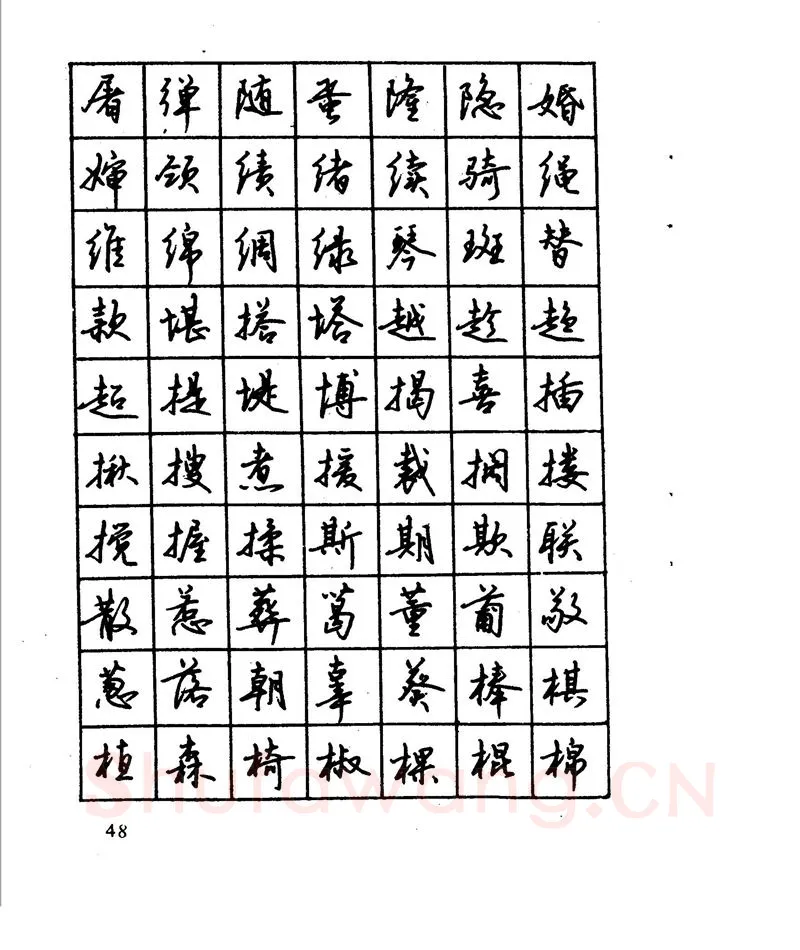 屠弹随蛋隆隐婚
婶颈绩绪续骑绳
维绵绸绿琴斑替
款堪搭塔越趁趋
超提堤博揭喜插
揪搜煮援裁搁搂
搅握揉斯期欺联
散惹葬葛董葡敬
葱落朝辜葵棒棋
植森椅椒棵棍棉
Shufawang.CN
48